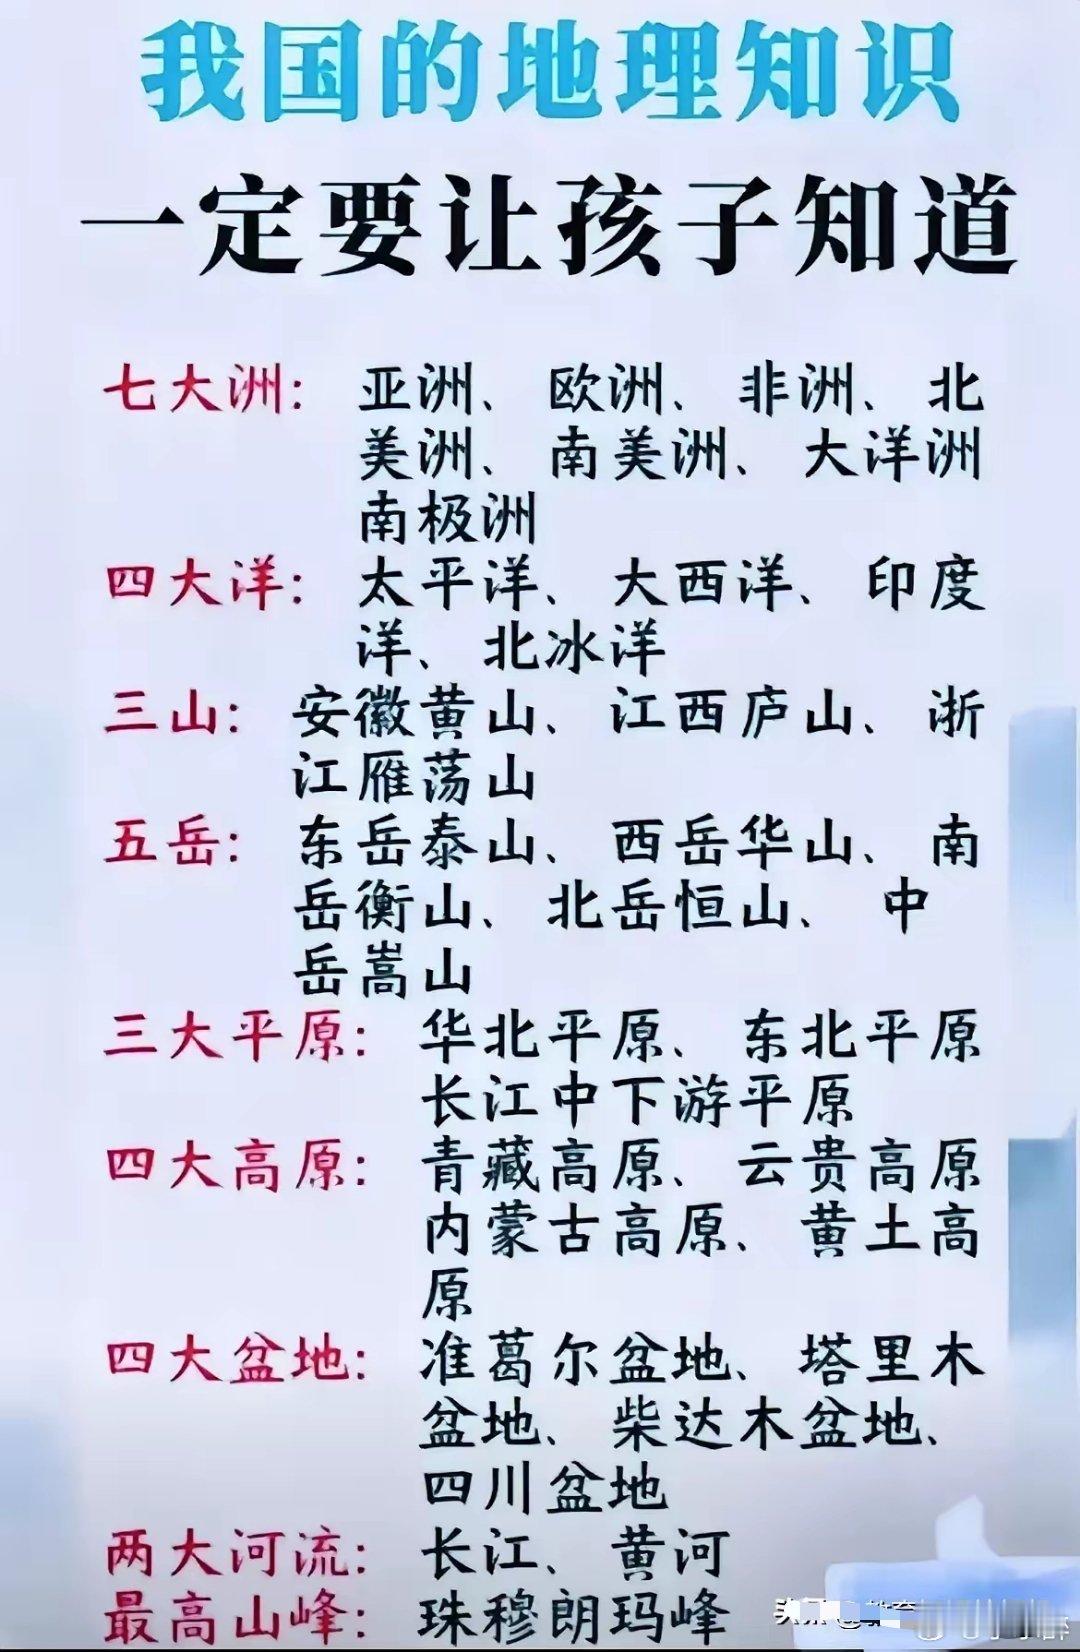 我国的地理知识
一定要让孩子知道
七大洲: 亚洲、欧洲、非洲、北
美洲、南美洲、大洋洲
南极洲
四大洋: 太平洋、大西洋、印度
洋、北冰洋
三山: 安徽黄山、江西庐山、浙
江雁荡山
五岳: 东岳泰山、西岳华山、南
岳衡山、北岳恒山、中
岳嵩山
三大平原: 华北平原、东北平原
长江中下游平原
四大高原: 青藏高原、云贵高原
内蒙古高原、黄土高
原
四大盆地: 准葛尔盆地、塔里木
盆地、柴达木盆地、
四川盆地
两大河流: 长江、黄河
最高山峰: 珠穆朗玛峰